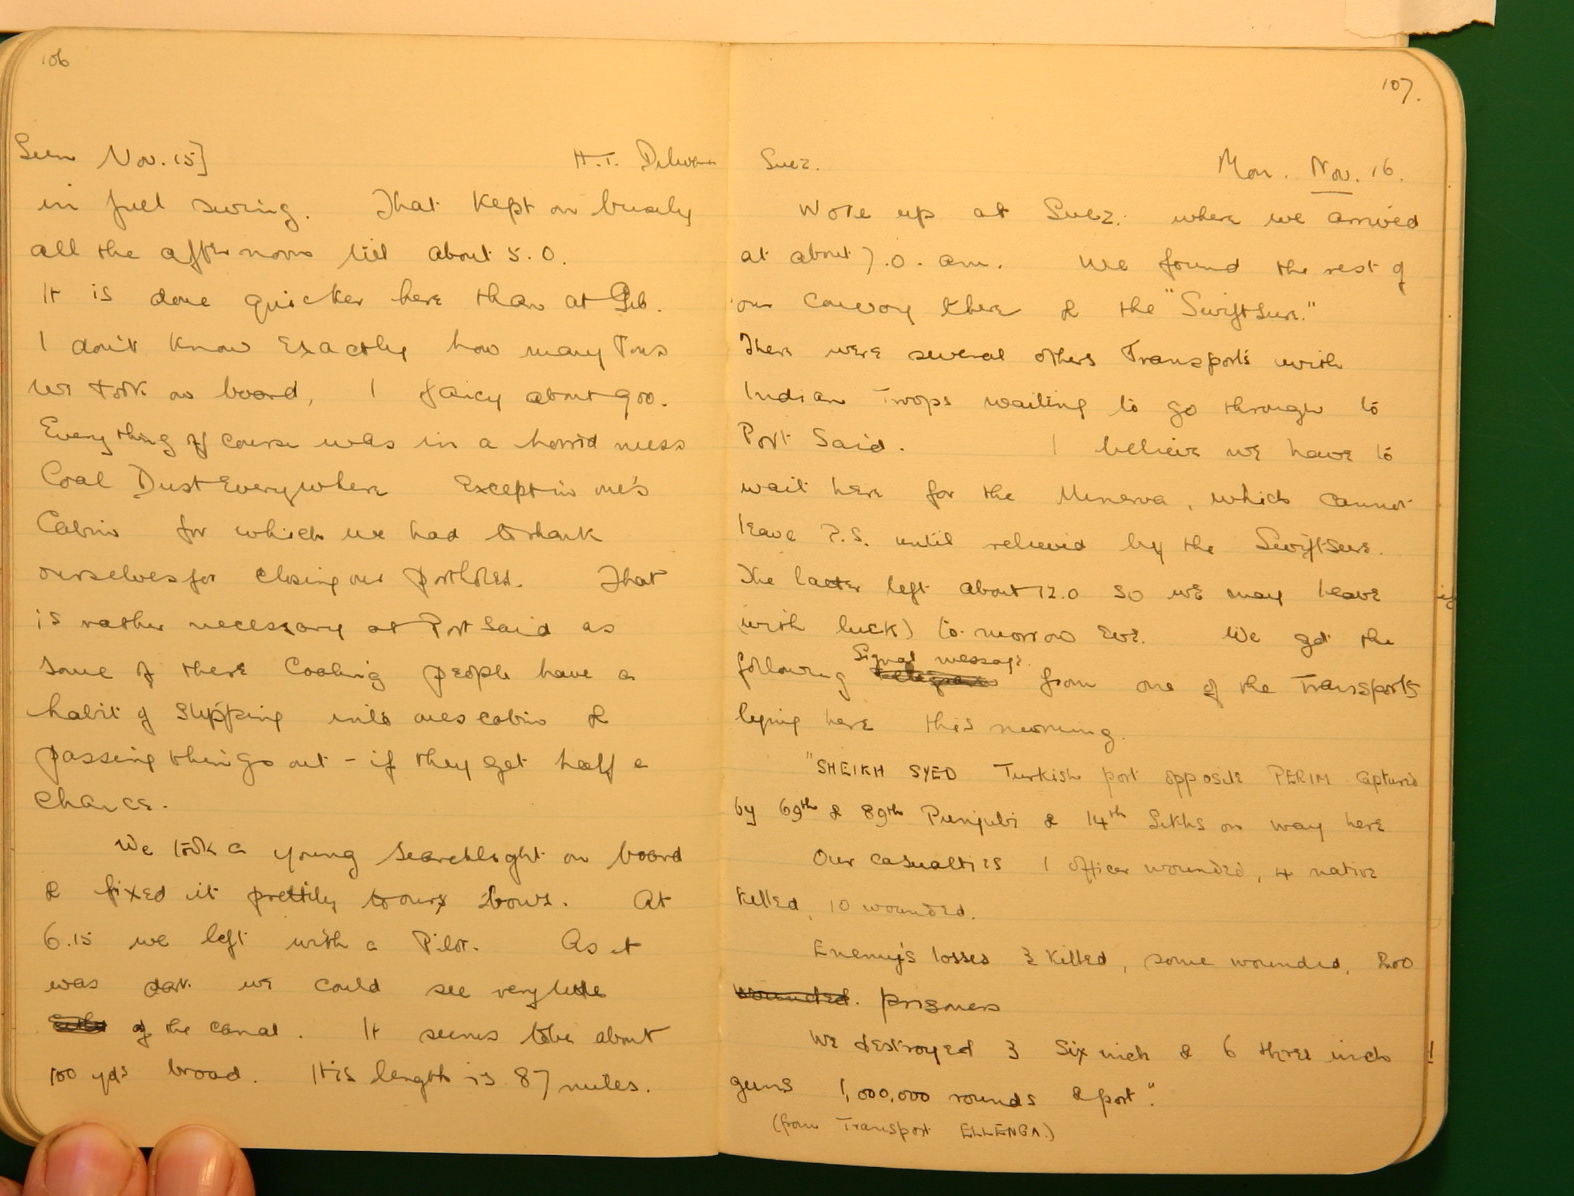 106
Sun Nov. 15]
H.T. Dilwara
in full swing. That kept on busily
all the afternoon till about 5.0.
It is done quicker here than at Gib.
I don't know exactly how many Tons
we took on board, I fancy about 900.
Everything of course was in a horrid mess
Coal Dust Everywhere Except in one's
Cabin for which we had to thank
ourselves for closing our portholes. That
is rather necessary at Port Said as
some of these Coaling people have a
habit of slipping into ones cabin &
passing things out - if they get half a
chance.
We took a young Searchlight on board
& fixed it prettily to our bows. At
6.15 we left with a Pilot. As it
was dark we could see very little
of the canal. It seems to be about
100 yds broad. Its length is 87 miles.
107.
Suez.
Mon. Nov. 16.
Woke up at Suez. where we arrived
at about 7.0. am. We found the rest of
our Convoy there & the "Swiftsure."
There were several others Transports with
Indian Troops waiting to go through to
Port Said. I believe we have to
wait here for the Minerva, which cannot
leave P.S. until relieved by the Swiftsure.
The latter left about 12.0 so we may leave
(with luck) to-morrow Eve. We got the
following Signal message from one of the Transports
lying here this morning.
"SHEIKH SYED Turkish port opposite PERIM captured
by 69th & 89th Punjabi & 14th Sikhs on way here
Our casualties 1 officer wounded, 4 native
killed, 10 wounded.
Enemy's losses 3 killed, some wounded, 200
wounded. prisoners
We destroyed 3 Six inch & 6 three inch !
guns 1,000,000 rounds & port".
(from Transport ELLENGA.)